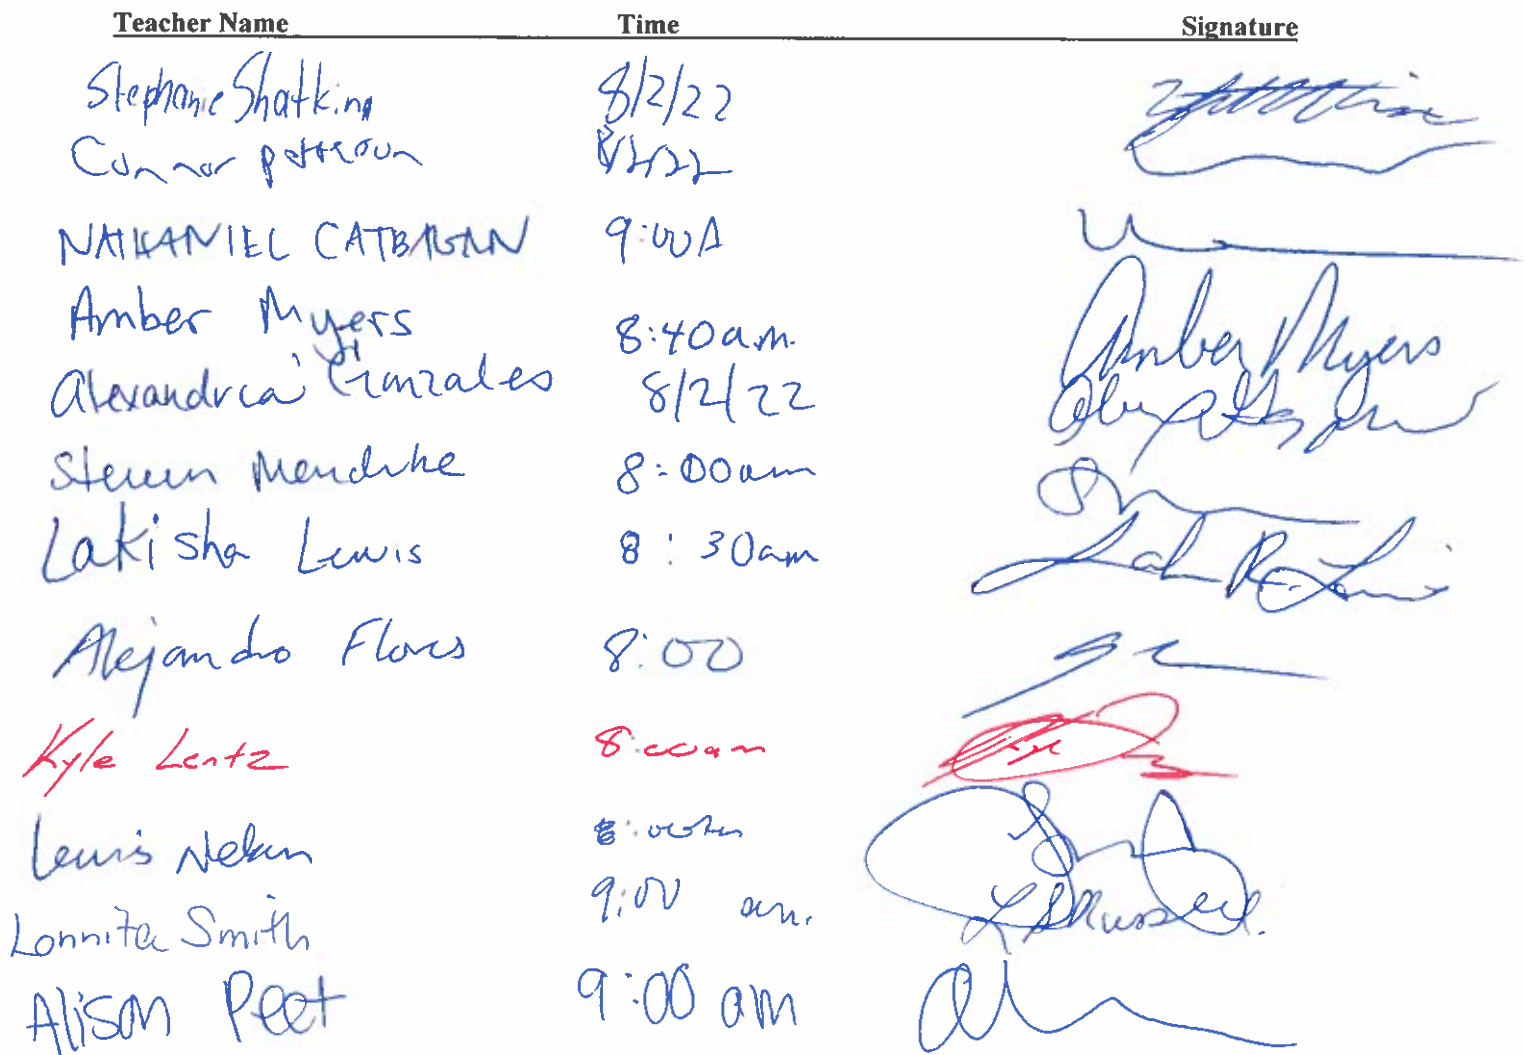 Teacher Name Time Signature
Stephanie Shatkin 8/2/22
Connor Patterson 8/2/22
NATHANIEL CATBAGAN 9:00A
Amber Myers 8:40am. Amber Myers
Alexandrea Gonzales 8/2/22
Steven 8:00am
Lakisha Lewis 8:30am
Alejandro Flores 8:00
Kyle Lentz 8:00am Kyle
Lewis Nelson
Lonnita Smith 9:00 am.
Alison Peet 9:00 am